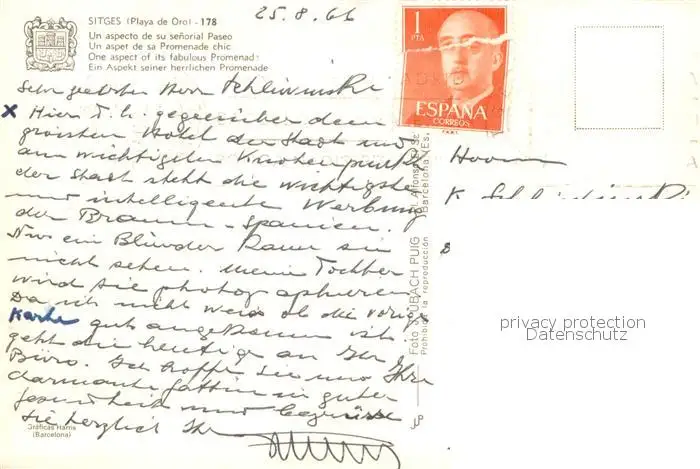 SITGES (Playa de Oro) - 178
Un aspecto de su señorial Paseo
Un aspet de sa Promenade chic
One aspect of its fabulous Promenad
Ein Aspekt seiner herrlichen Promenade
25.8.66
1
PTA
ESPAÑA
CORREOS
Sehr geehrter Herr Schliwinski
x Hier d.h. gegenüber dem
grössten Hotel der Stadt und
am wichtigsten Knotenpunkt
der Stadt steht die wichtigste
und intelligente Werbung
der Braun-Spanien.
Nur ein Blinder kann sie
nicht sehen. Meine Tochter
wird sie photographieren
Da ich nicht weiss ob die vorige
Karte gut angekommen ist
geht die heutige an Ihr
Büro. Ich hoffe Sie und Ihre
charmante Gattin in guter
Gesundheit und begrüsse
Sie herzlich Ihr
Herrn
K.
Foto J. UBACH PUIG
Prohibida la reproducción
Barcelona
Gráficas Hama
(Barcelona)
privacy protection
Datenschutz